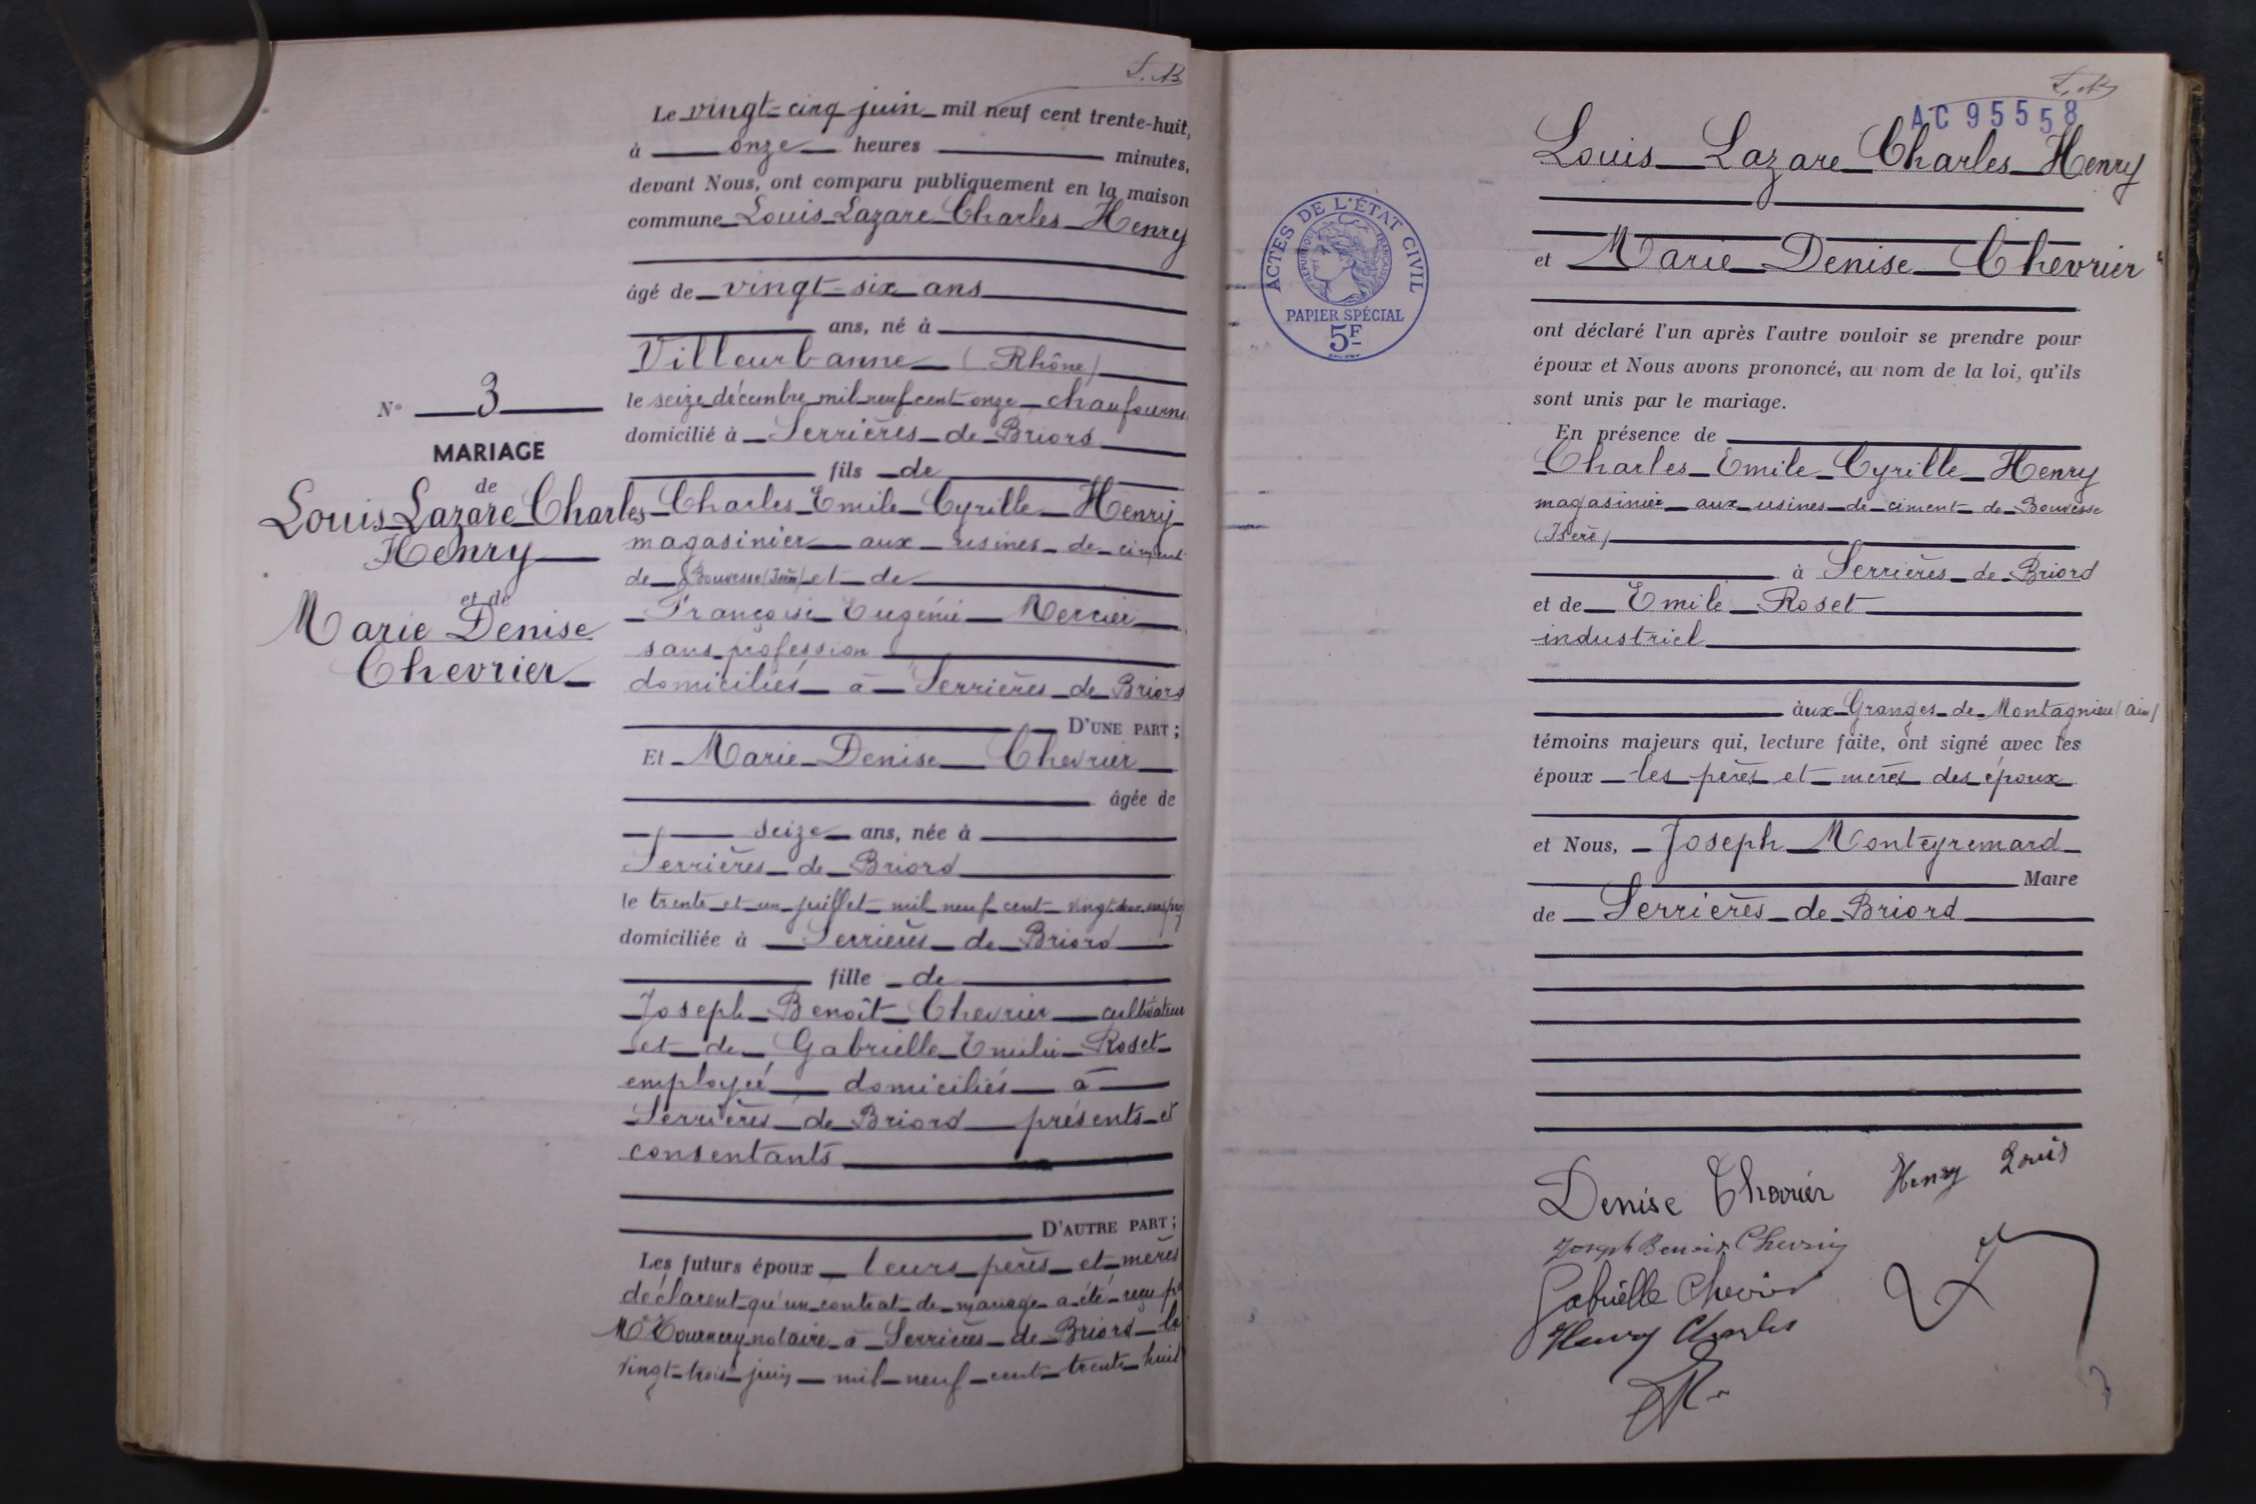 S. B
Le vingt-cinq juin mil neuf cent trente-huit,
à onze heures minutes,
devant Nous, ont comparu publiquement en la maison
commune Louis Lazare Charles Henry
âgé de vingt-six ans
ans, né à
Villeurbanne (Rhône)
le seize décembre mil neuf cent onze chaufourni
domicilié à Serrières de Briord
fils de
Charles Emile Cyrille Henry
magasinier aux usines de ciment
de Bouvesse (Isère) et de
Françoise Eugénie Mercier
sans profession
domiciliés à Serrières de Briord
D'UNE PART ;
Et Marie Denise Chevrier
âgée de
seize ans, née à
Serrières de Briord
le trente et un juillet mil neuf cent vingt deux
domiciliée à Serrières de Briord
fille de
Joseph Benoît Chevrier cultivateur
et de Gabrielle Emilie Roset
employée domiciliés à
Serrières de Briord présents et
consentants
D'AUTRE PART ;
Les futurs époux leurs pères et mères
déclarent qu'un contrat de mariage a été reçu
Me notaire à Serrières de Briord le
vingt-trois juin mil neuf cent trente huit
N° 3
MARIAGE
de
Louis Lazare Charles
Henry
et de
Marie Denise
Chevrier
AC 95558
Louis Lazare Charles Henry
et Marie Denise Chevrier
ont déclaré l'un après l'autre vouloir se prendre pour
époux et Nous avons prononcé, au nom de la loi, qu'ils
sont unis par le mariage.
En présence de
Charles Emile Cyrille Henry
magasinier aux usines de ciment de Bouvesse
(Isère)
à Serrières de Briord
et de Emile Roset
industriel
aux Granges de Montagnieu (Ain)
témoins majeurs qui, lecture faite, ont signé avec les
époux les pères et mères des époux
et Nous, Joseph Monteyremard
Maire
de Serrières de Briord
ACTES DE L'ÉTAT CIVIL
RÉPUBLIQUE FRANÇAISE
PAPIER SPÉCIAL
5F
Denise Chevrier Henry Louis
Joseph Benoit Chevrier
Gabrielle Chevrier
Henry Charles